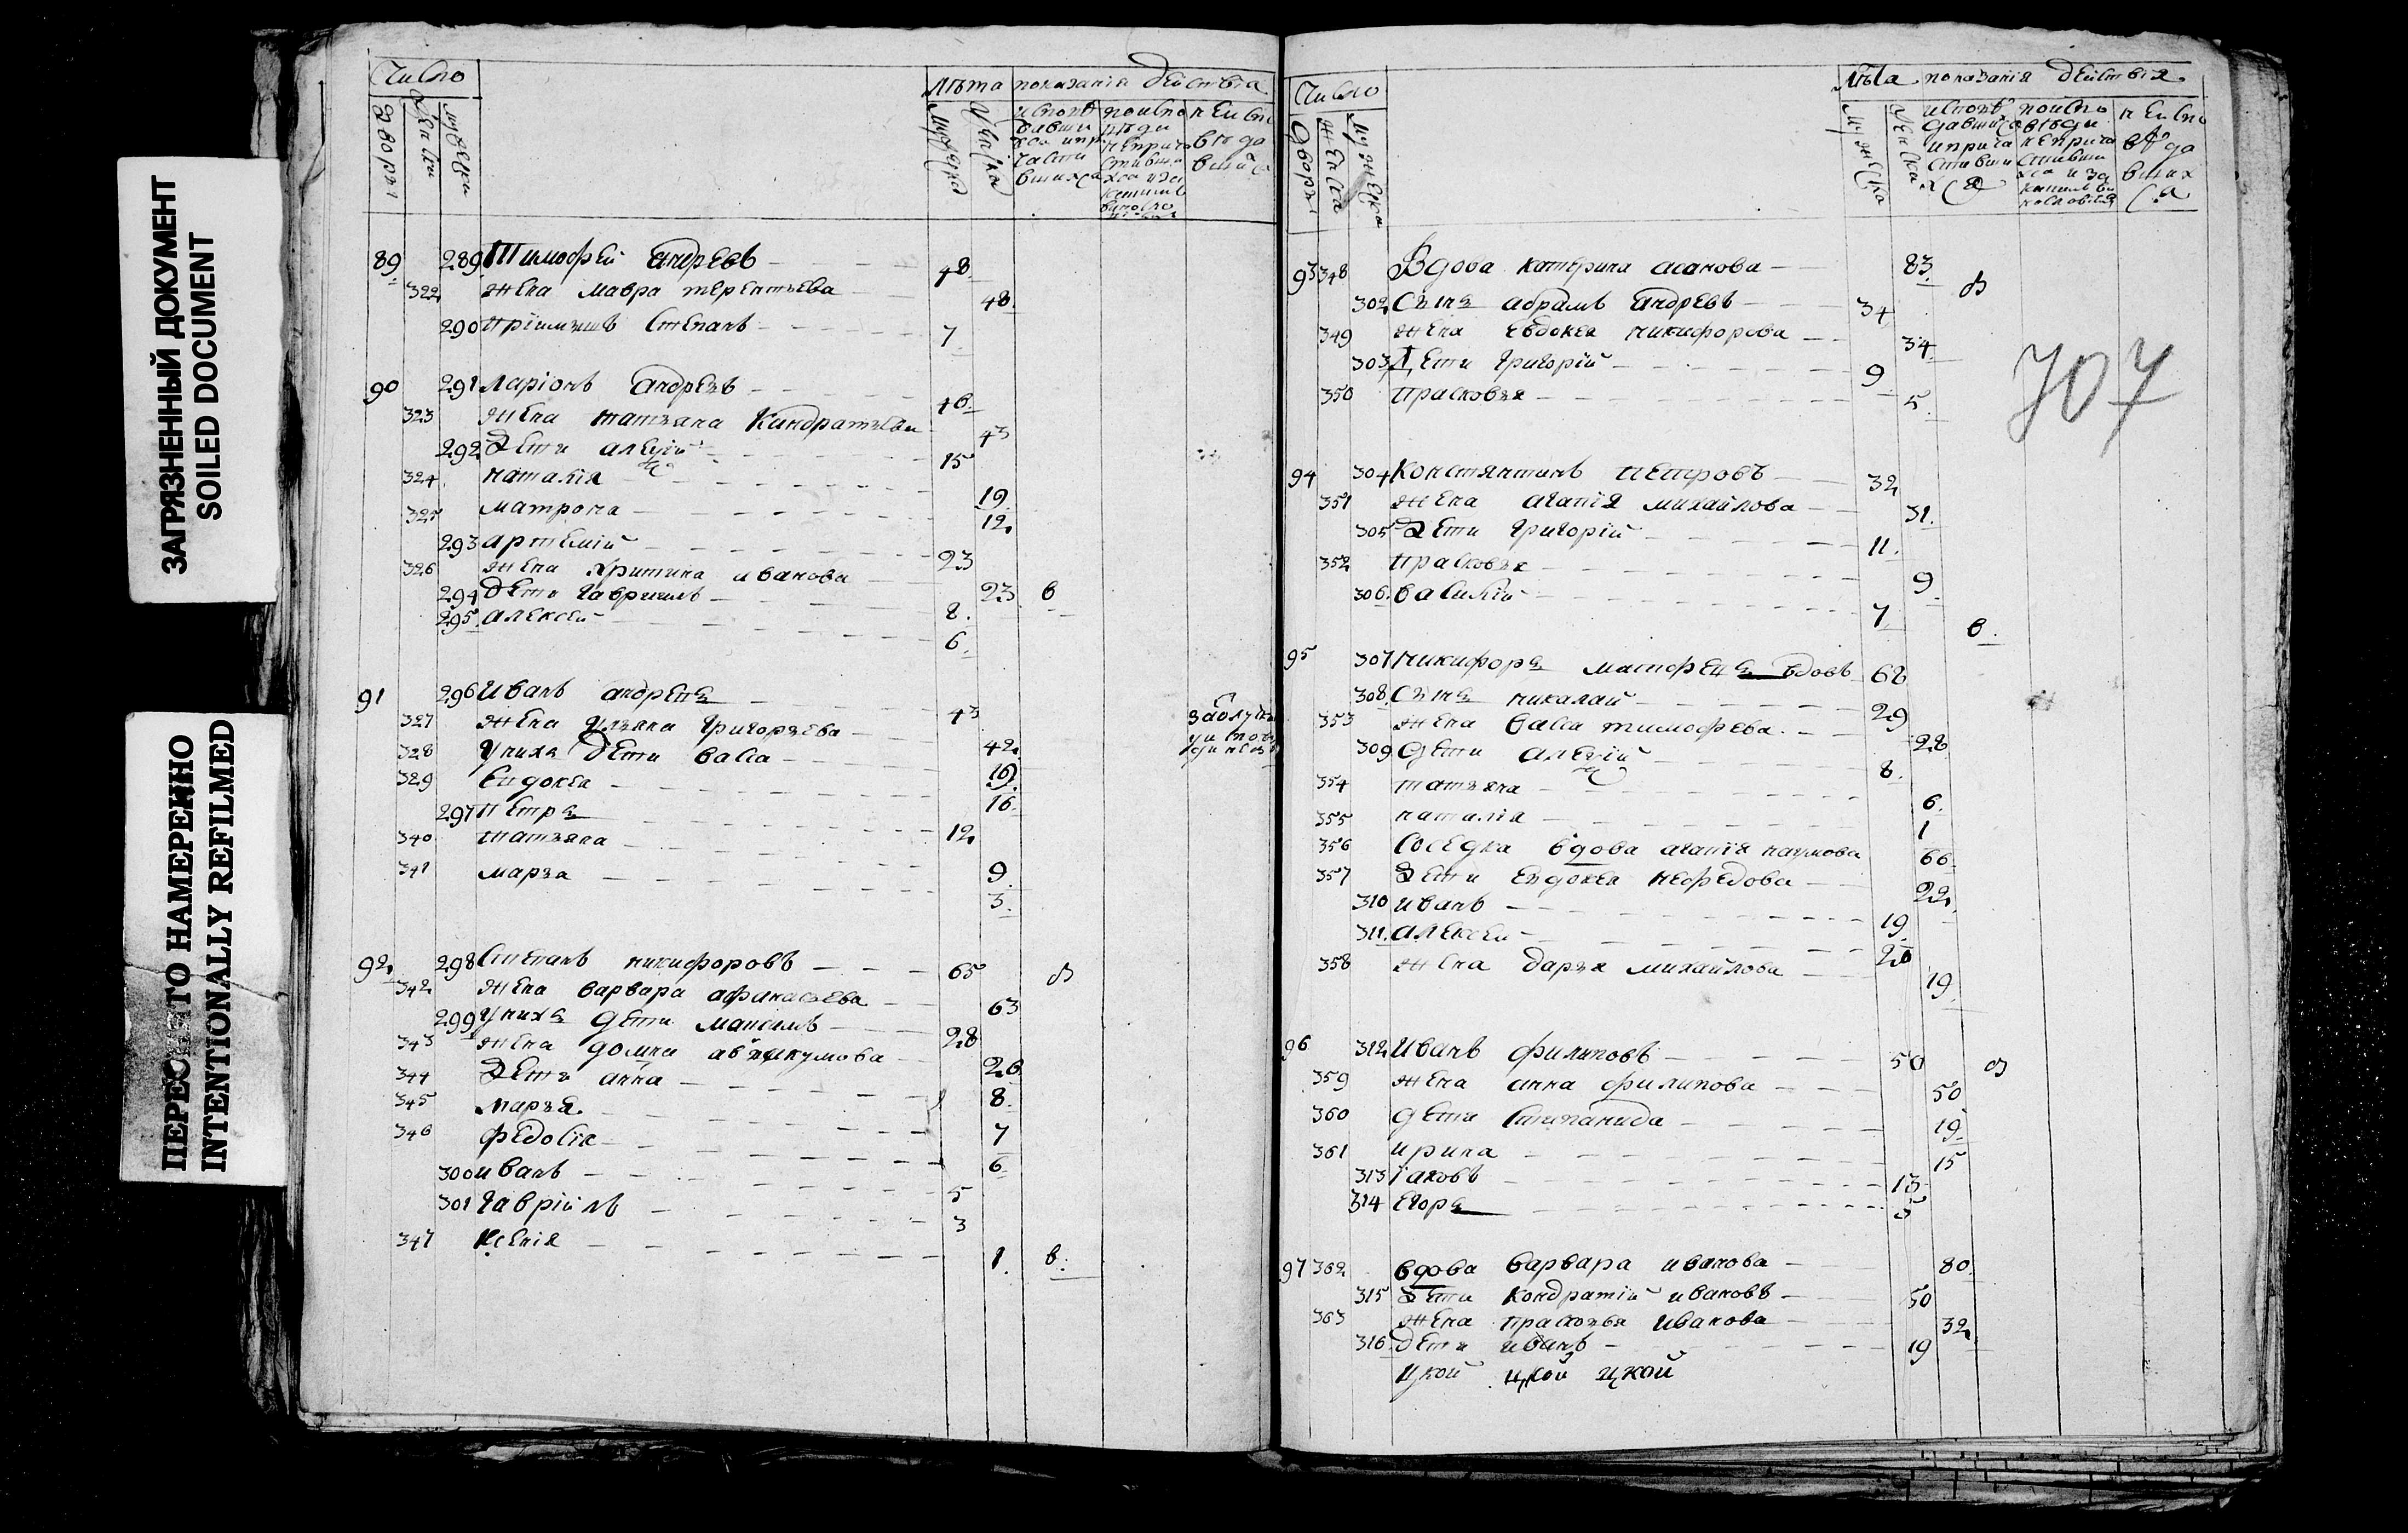 ЗАГРЯЗНЕННЫЙ ДОКУМЕНТ
SOILED DOCUMENT
ПЕРЕСНЯТО НАМЕРЕННО
INTENTIONALLY REFILMED
Число
Лѣта показанія дѣйствія
89 289 Тимофей андревъ 48
322 жена мавра терентьева 48
290 прiимышъ степанъ 7
90 291 ларіонъ андревъ 46
323 жена татьяна Кандратьева 43
292 Дети алексій 15
324 наталія 19
325 матрона 12
293 артемій 23
326 жена христина иванова 23 в
294 дети гавриилъ 8
295 алексей 6
91 296 Иванъ андреевъ 43
327 жена ульяна григорьева 42
328 у них дети васса 19
329 Евдокея 16
297 петръ 12
340 татьяна 9
341 марья 3
92 298 Степанъ никифоровъ 65
342 жена варвара афанасьева 63
299 у нихъ дети максимъ 28
343 жена домна аввакумова 26
344 Дети анна 8
345 марья 7
346 федосія 6
300 иванъ 5
301 гавріилъ 3
347 Ксенія 1 в
Число
Лѣта показанія дѣйствія
93 348 Вдова катерина асанова 83
302 Сынъ абрамъ андревъ 34
349 жена евдокея никифорова 34
303 Дети григорій 9
350 прасковья 5
707
94 304 Константинъ петровъ 32
351 жена агапія михайлова 31
305 Дети григорій 11
352 прасковья 9
306 василій 7 в
95 307 никифоръ вдовъ 62
308 Сынъ никалай 29
353 жена васса тимофева 28
309 дети алексій 8
354 татьяна 6
355 наталія 1
356 Соседка вдова агапія наумова 66
357 Дети евдокея нефедова 22
310 иванъ 19
311 алексеи 20
358 жена дарья михайлова 19
96 312 Иванъ филиповъ 50
359 жена анна филипова 50
360 дети степанида 19
361 ирина 15
313 Іаковъ 13
314 Егоръ 5
97 362 вдова варвара иванова 80
315 Дети кондратій ивановъ 50
363 жена прасковья иванова 32
316 Дети иванъ 19
цкой цкой цкой